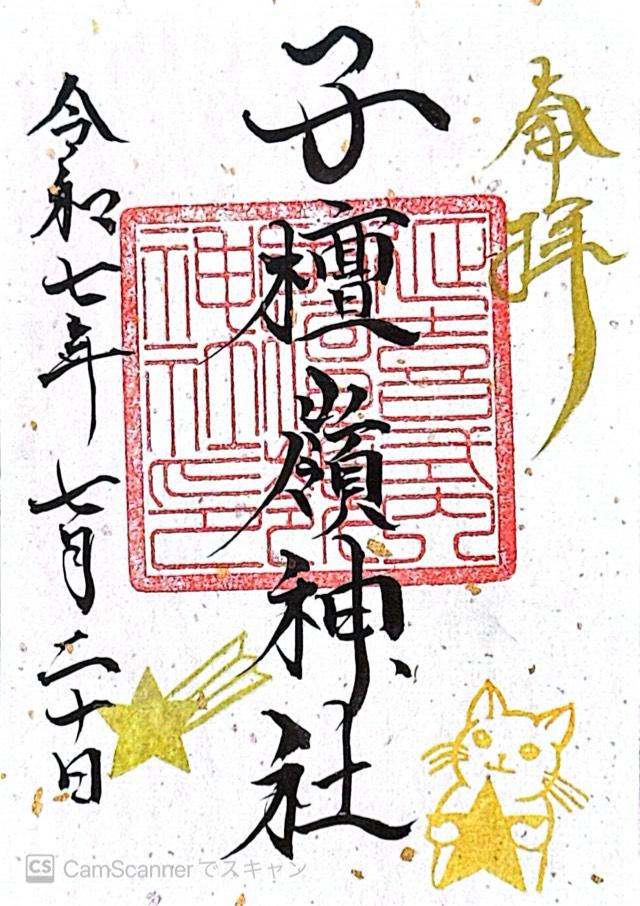 奉拝
子檀嶺神社
令和七年七月二十日
CS CamScannerでスキャン